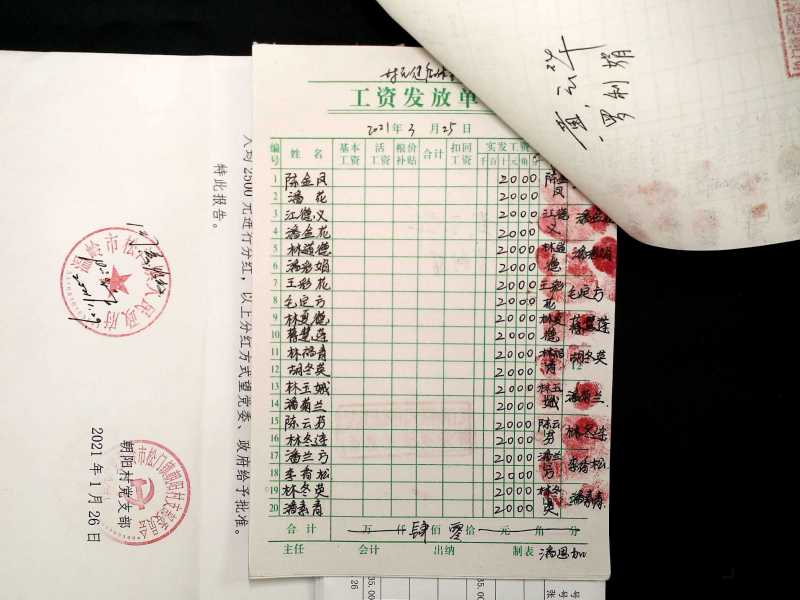 工资发放单
2021年3月25日
编号 姓名 基本工资 活工资 粮价补贴 合计 扣回工资 实发工资
千百十元角
1 陈金凤 2000 陈金凤
2 潘花 2000
3 江德义 2000 江德义
4 潘金花 2000
5 林道德 2000 林道德
6 潘彩娟 2000 潘彩娟
7 王彩花 2000 王彩花
8 毛定方 2000 毛定方
9 林夏德 2000 林夏德
10 蒋慧莲 2000 蒋慧莲
11 林福清 2000 林福清
12 胡冬英 2000 胡冬英
13 林玉娥 2000 林玉娥
14 潘菊兰 2000 潘菊兰
15 陈云芬 2000 陈云芬
16 林冬连 2000 林冬连
17 潘兰方 2000 潘兰方
18 李香松 2000 李香松
19 林冬英 2000 林冬英
20 潘素青 2000 潘素青
合计 万仟肆佰零拾元角分
主任 会计 出纳 制表 潘恩加
2500元进行分红，以上分红方式望党委、政府给予批准。
特此报告。
朝阳村党支部
2021年1月26日